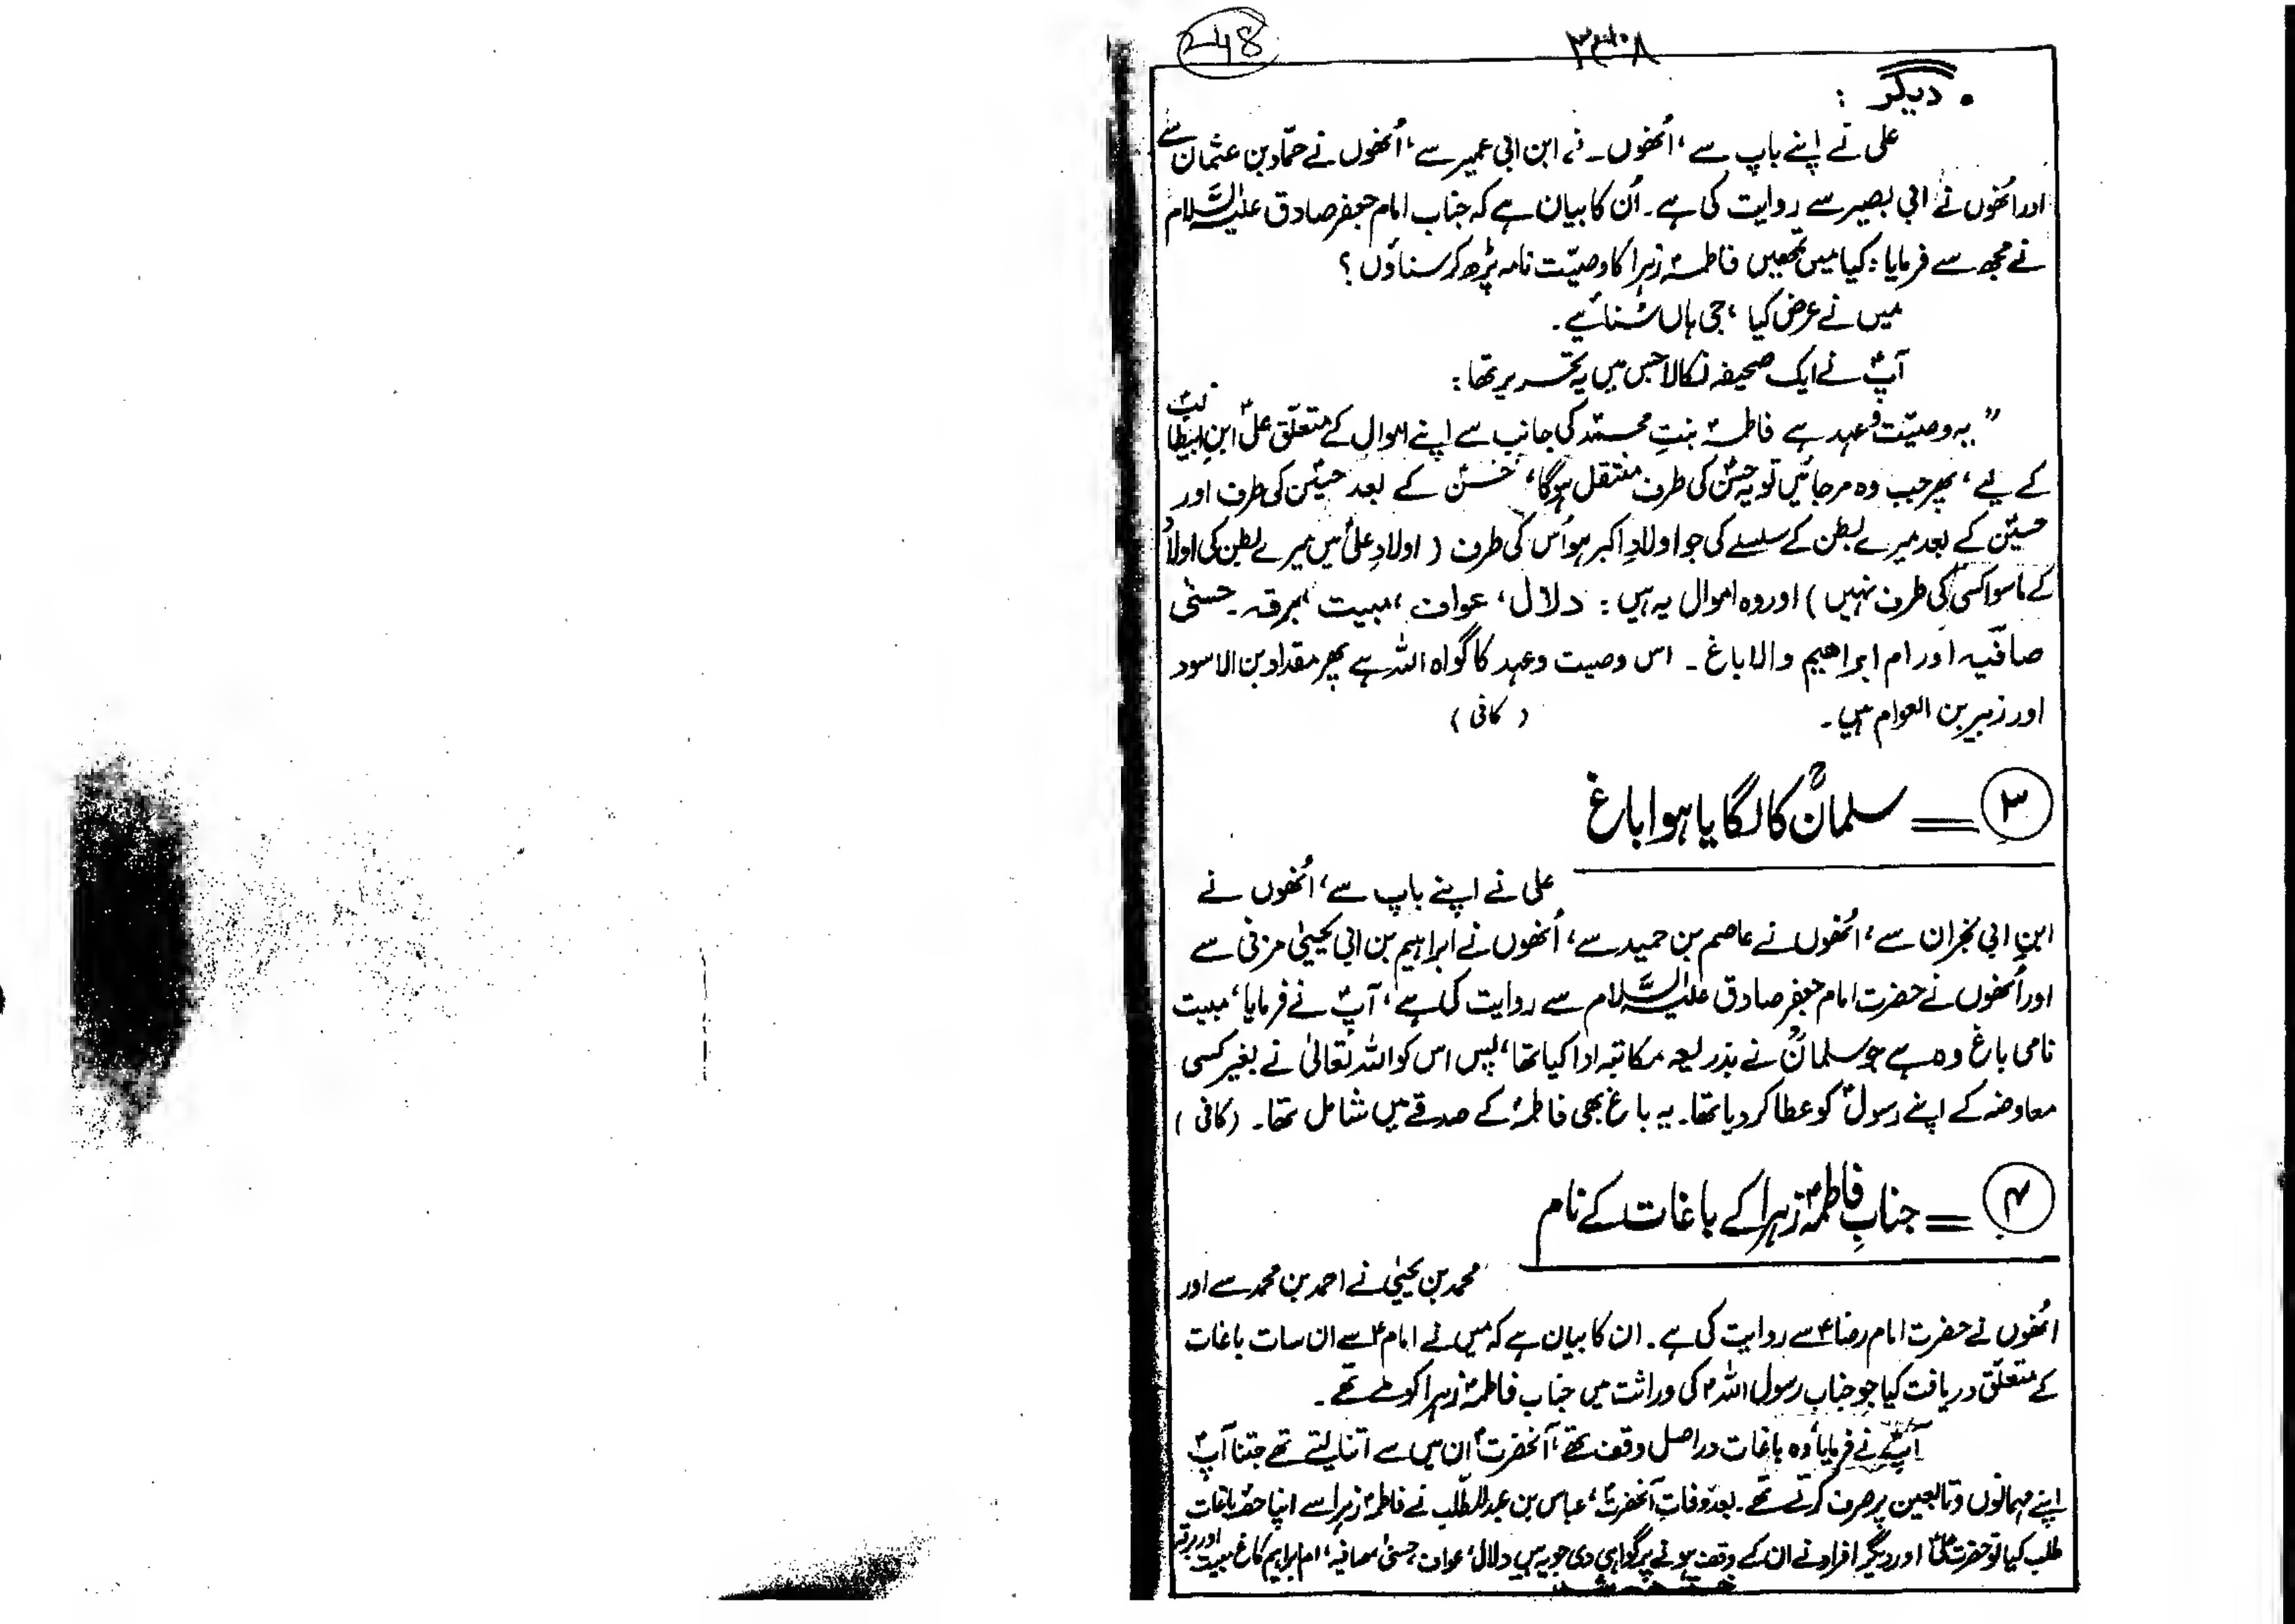 248
۳۰۸
• دیگر :
علی نے اپنے باپ سے ‘ اُنھوں نے ابن ابی عمیر سے ‘ اُنھوں نے حمّاد بن عثمان سے
اور اُنھوں نے ابی بصیر سے روایت کی ہے۔ اُن کا بیان ہے کہ جناب امام جعفر صادق علیہ السَّلام
نے مجھ سے فرمایا : کیا میں تمھیں فاطمہؑ زہرا کا وصیّت نامہ پڑھ کر سناؤں ؟
میں نے عرض کیا ‘ جی ہاں سُنائیے۔
آپؑ نے ایک صحیفہ نکالا جس میں یہ تحریر تھا :
” یہ وصیّت و عہد ہے فاطمہؑ بنتِ محمدؐ کی جانب سے اپنے اموال کے متعلّق علیؑ ابنِ ابیطالبؑ
کے لیے ‘ پھر جب وہ مر جائیں تو یہ حسنؑ کی طرف منتقل ہوگا ‘ حسنؑ کے بعد حسینؑ کی طرف اور
حسینؑ کے بعد میرے بطن کے سلسلے کی جو اولادِ اکبر ہو اُس کی طرف ( اولادِ علیؑ میں میرے بطن کی اولاد
کے ماسوا کسی کی طرف نہیں ) اور وہ اموال یہ ہیں : دلال ‘ عواف ‘ مبیت ‘ برقہ۔ حسنٰی
صافیہ اور ام ابراھیم والا باغ ۔ اس وصیت و عہد کا گواہ اللہ ہے پھر مقداد بن الاسود
اور زبیر بن العوام ہیں۔ ( کافی )
۳ = سلمانؓ کا لگایا ہوا باغ
علی نے اپنے باپ سے ‘ اُنھوں نے
ابنِ ابی نجران سے ‘ اُنھوں نے عاصم بن حمید سے ‘ اُنھوں نے ابراہیم بن ابی یحییٰ مزنی سے
اور اُنھوں نے حضرت امام جعفر صادق علیہ السَّلام سے روایت کی ہے ‘ آپؑ نے فرمایا ‘ مبیت
نامی باغ وہ ہے جو سلمانؓ نے بذریعہ مکاتبہ ادا کیا تھا ‘ پس اس کو اللہ تعالیٰ نے بغیر کسی
معاوضہ کے اپنے رسولؐ کو عطا کر دیا تھا۔ یہ باغ بھی فاطمہؑ کے صدقے میں شامل تھا۔ (کافی )
۴ = جنابِ فاطمہؑ زہرا کے باغات کے نام
محمد بن یحییٰ نے احمد بن محمد سے اور
اُنھوں نے حضرت امام رضاؑ سے روایت کی ہے۔ ان کا بیان ہے کہ میں نے امامؑ سے ان سات باغات
کے متعلّق دریافت کیا جو جناب رسول اللہؐ کی وراثت میں جناب فاطمہؑ زہرا کو ملے تھے۔
آپؑ نے فرمایا وہ باغات دراصل وقف تھے ‘ آنحضرتؐ ان میں سے اتنا لیتے تھے جتنا آپؐ
اپنے مہمانوں و تابعین پر صرف کرتے تھے۔ بعد وفاتِ آنحضرتؐ ‘ عباس بن عبدالمطّلب نے فاطمہؑ زہرا سے اپنا حصّہ باغات
طلب کیا تو حضرت علیؑ اور دیگر افراد نے ان کے وقف ہونے پر گواہی دی جو یہ ہیں دلال ‘ عواف ‘ حسنٰی ‘ صافیہ ‘ ام ابراہیم کا باغ مبیت اور برقہ